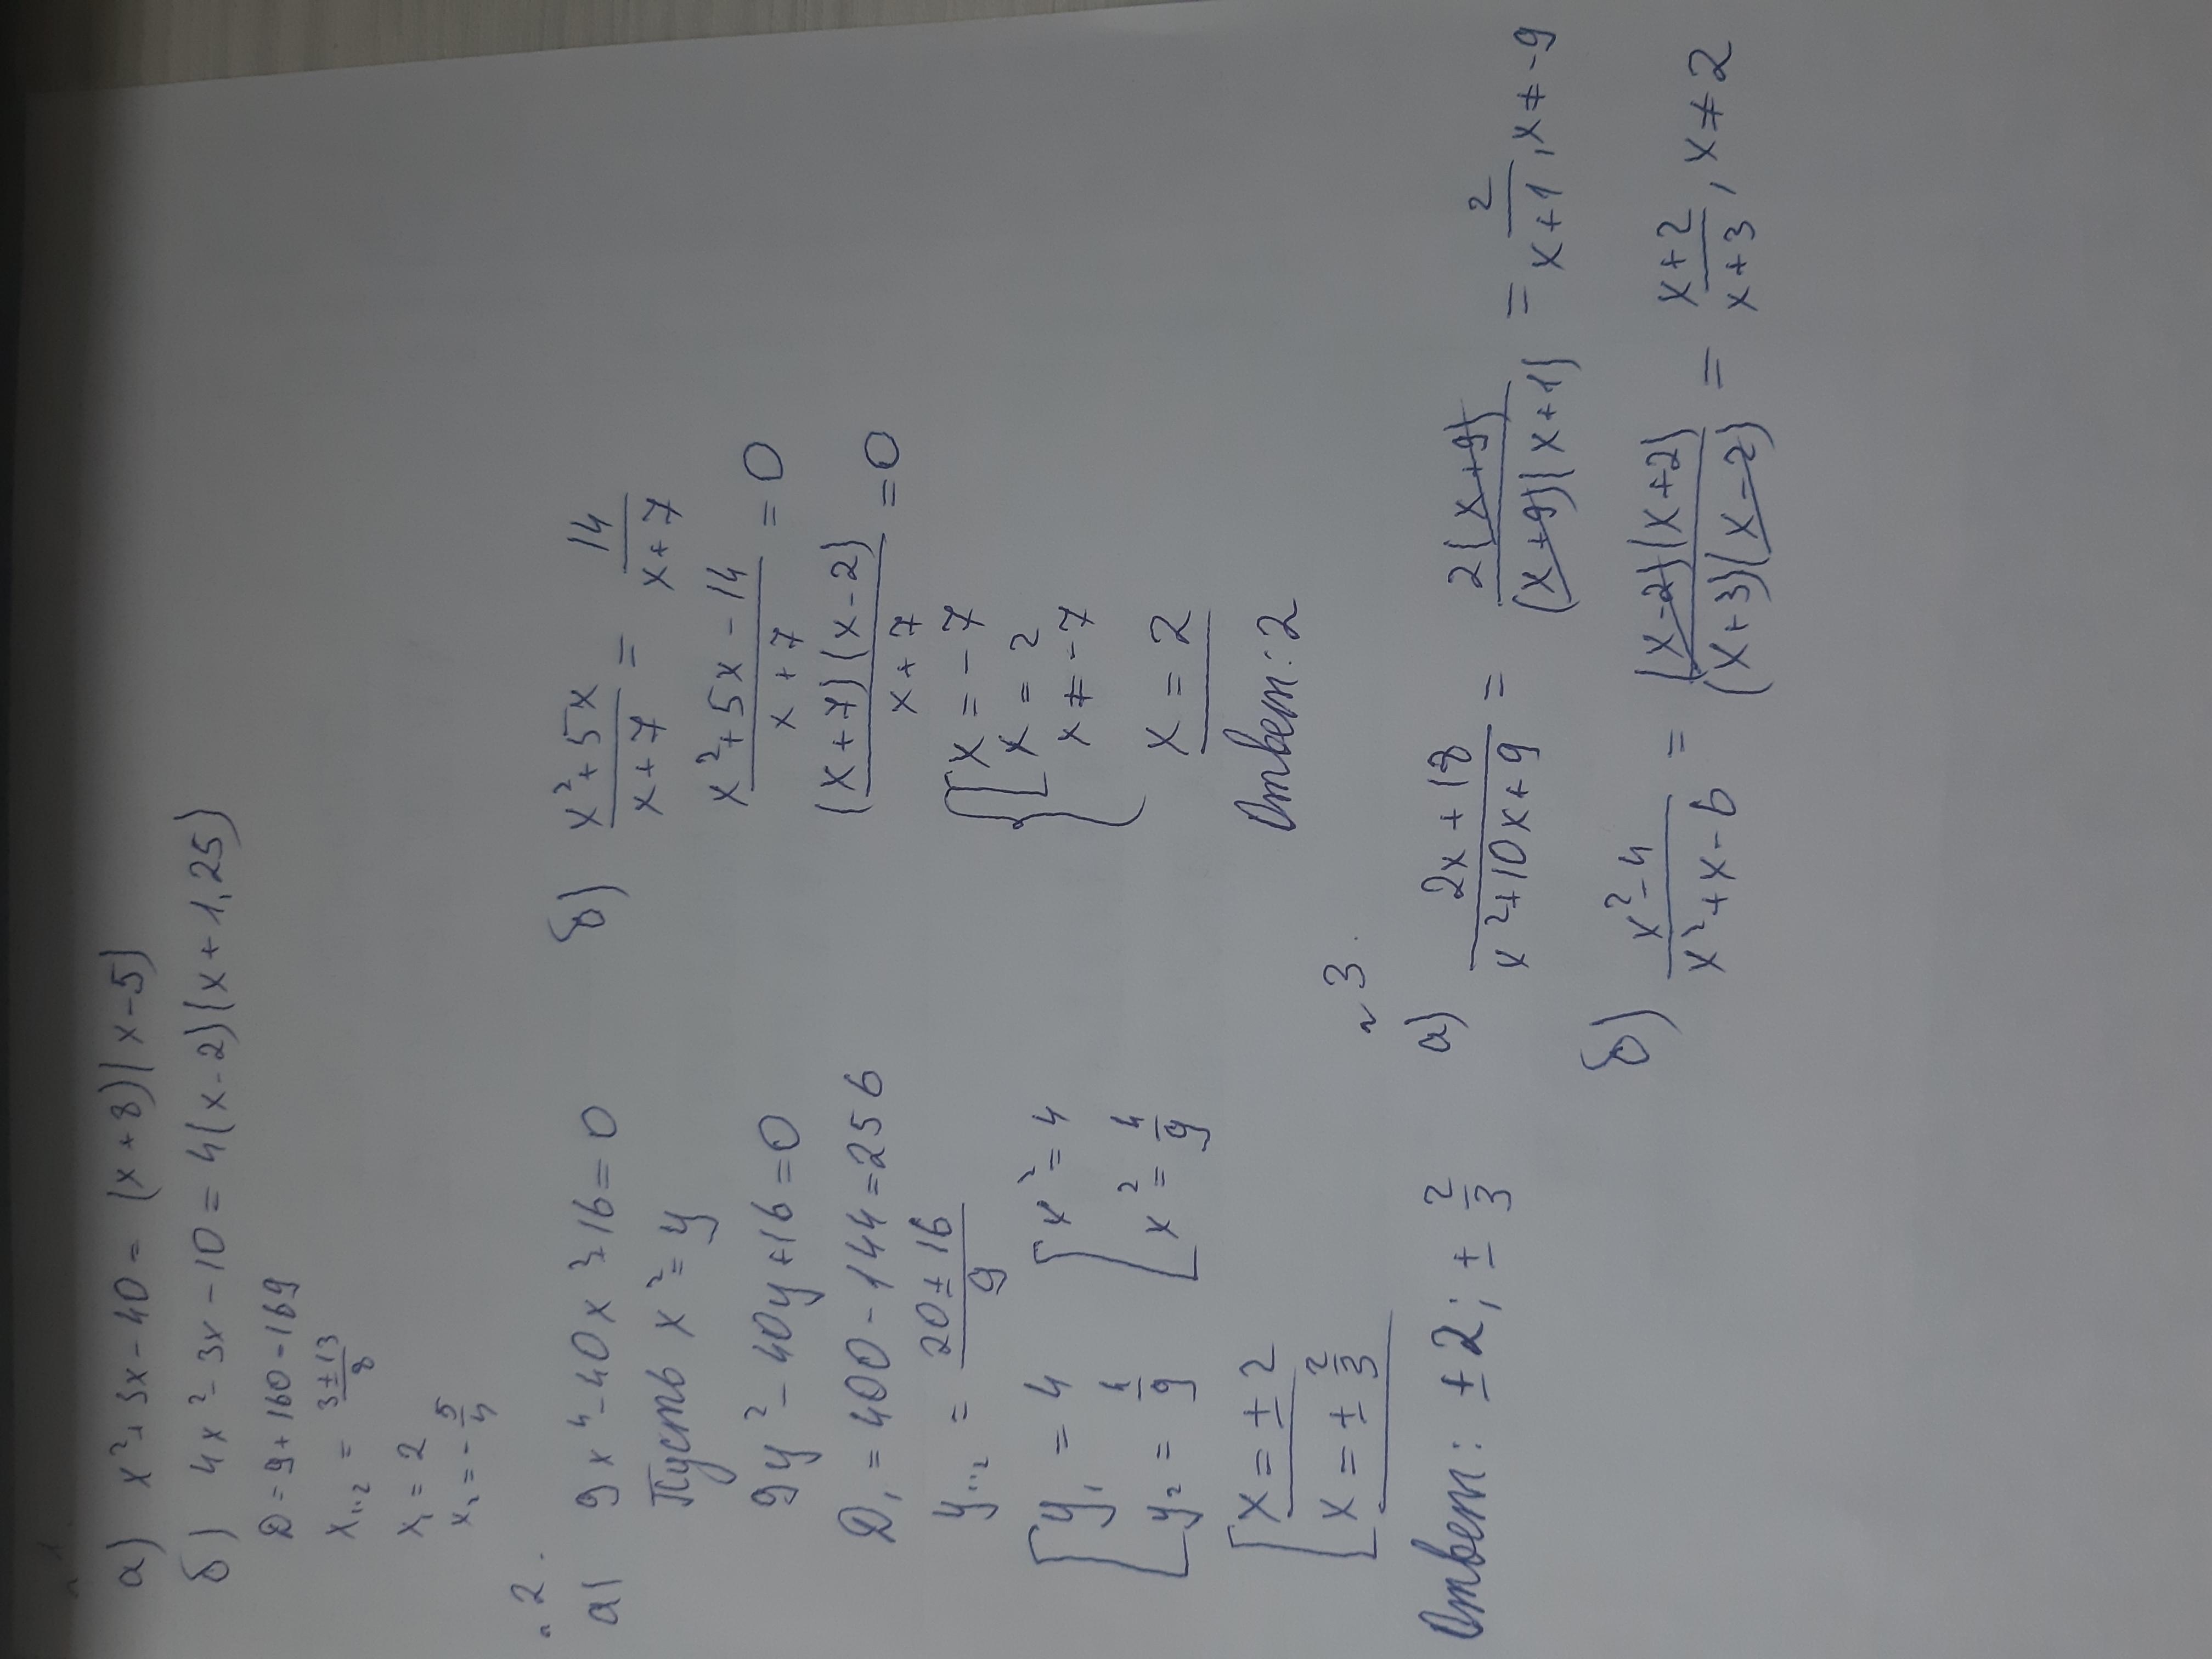 ~ 1.
а) x² + 3x - 40 = (x + 8)(x - 5)
б) 4x² - 3x - 10 = 4(x - 2)(x + 1,25)
D = 9 + 160 = 169
x₁,₂ = (3 ± 13)/8
x₁ = 2
x₂ = -5/4
~ 2.
а) 9x⁴ - 40x² + 16 = 0
Пусть x² = y
9y² - 40y + 16 = 0
D₁ = 400 - 144 = 256
y₁,₂ = (20 ± 16)/9
[ y₁ = 4 [ x² = 4
[ y₂ = 4/9 [ x² = 4/9
[ x = ± 2
[ x = ± 2/3
Ответ: ± 2; ± 2/3
б) (x² + 5x)/(x + 7) = 14/(x + 7)
(x² + 5x - 14)/(x + 7) = 0
((x + 7)(x - 2))/(x + 7) = 0
{ [ x = -7
{ [ x = 2
{ x ≠ -7
x = 2
Ответ: 2
~ 3.
а) (2x + 18)/(x² + 10x + 9) = (2(x + 9))/((x + 9)(x + 1)) = 2/(x + 1), x ≠ -9
б) (x² - 4)/(x² + x - 6) = ((x - 2)(x + 2))/((x + 3)(x - 2)) = (x + 2)/(x + 3), x ≠ 2